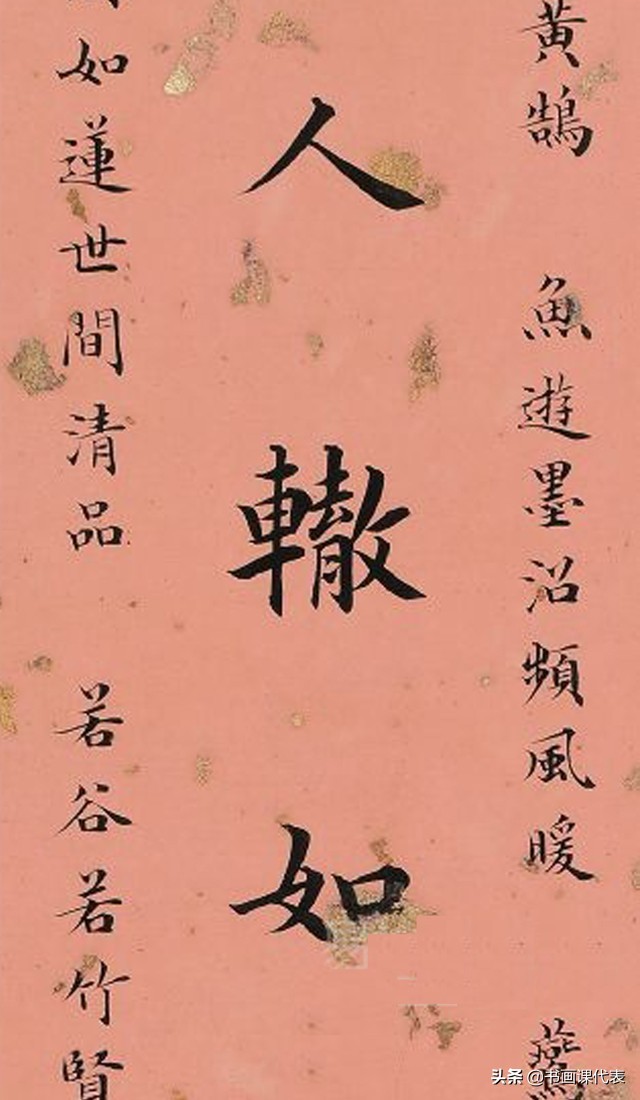 黄鵠 魚遊墨沼頻風暖 燕
人轍如
如蓮世間清品 若谷若竹賢
头条 @书画课代表